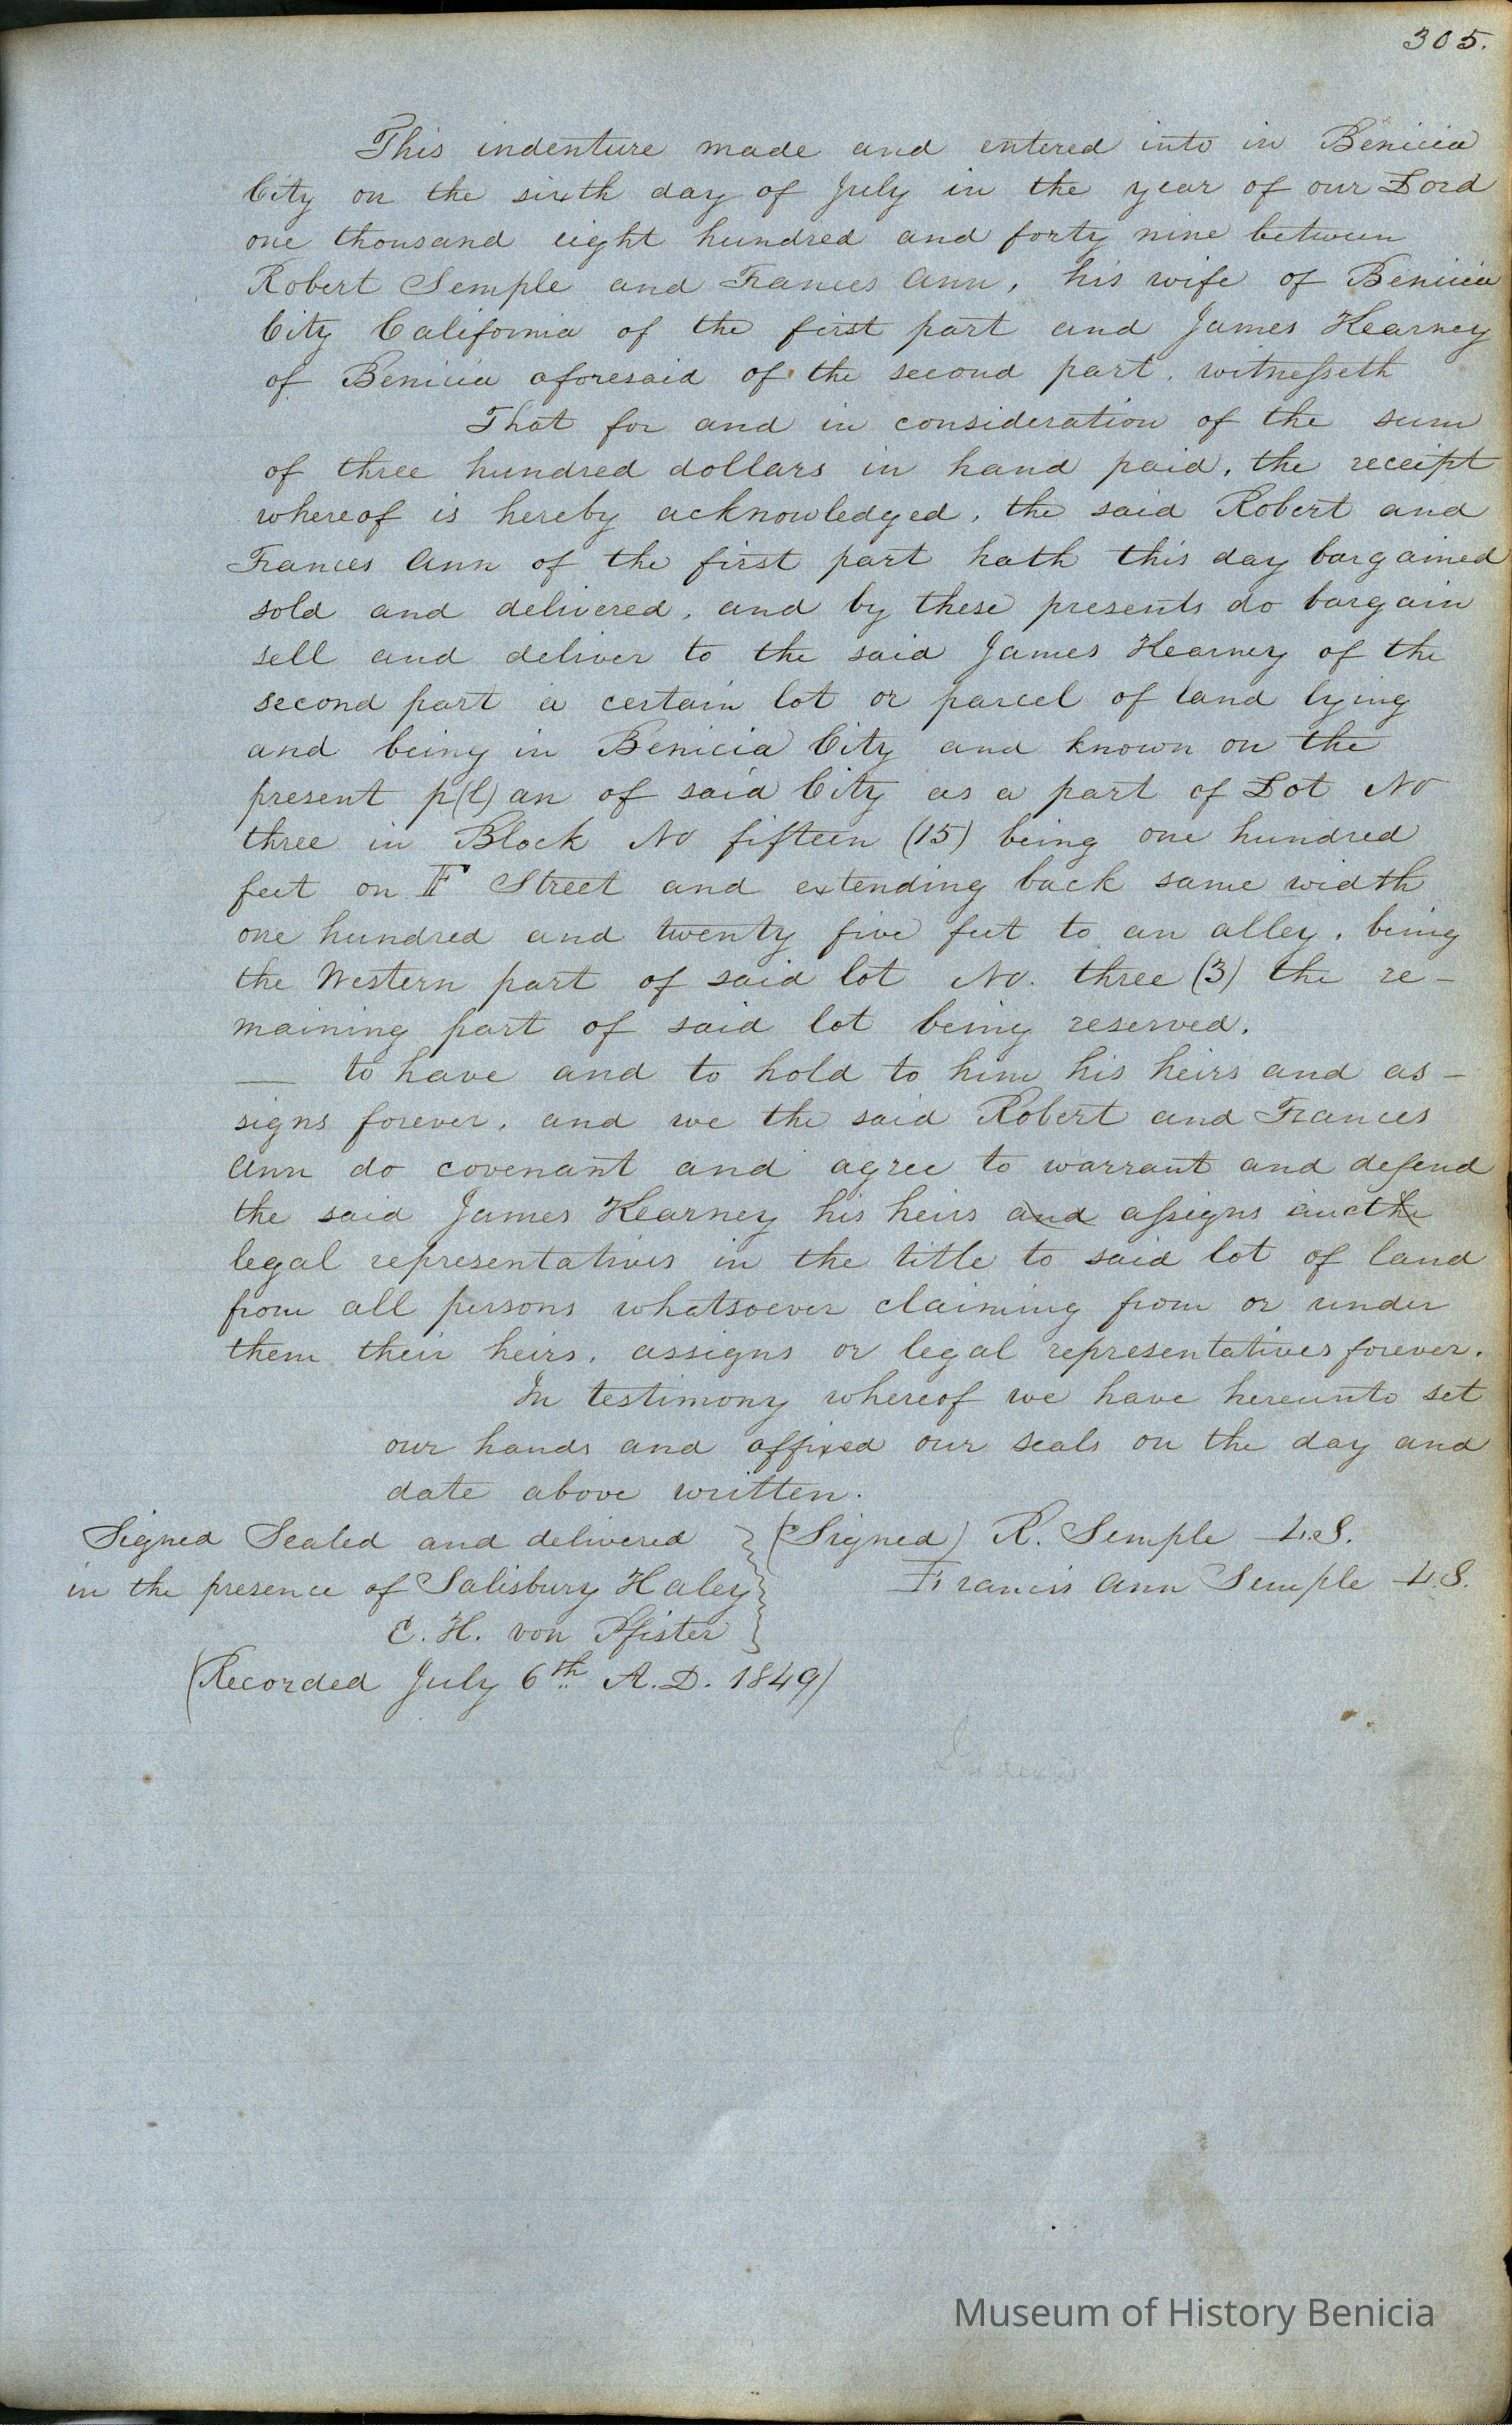 305.
This indenture made and entered into in Benicia
City on the sixth day of July in the year of our Lord
one thousand eight hundred and forty nine between
Robert Semple and Frances Ann, his wife of Benicia
City California of the first part and James Kearney
of Benicia aforesaid of the second part, witnesseth
That for and in consideration of the sum
of three hundred dollars in hand paid, the receipt
whereof is hereby acknowledged, the said Robert and
Frances Ann of the first part hath this day bargained
sold and delivered, and by these presents do bargain
sell and deliver to the said James Kearney of the
second part a certain lot or parcel of land lying
and being in Benicia City and known on the
present p(l)an of said City as a part of Lot No
three in Block No fifteen (15) being one hundred
feet on F Street and extending back same width
one hundred and twenty five feet to an alley, being
the Western part of said lot No. three (3) the re-
maining part of said lot being reserved.
— to have and to hold to him his heirs and as-
signs forever, and we the said Robert and Frances
Ann do covenant and agree to warrant and defend
the said James Kearney his heirs and assigns
legal representatives in the title to said lot of land
from all persons whatsoever claiming from or under
them their heirs, assigns or legal representatives forever.
In testimony whereof we have hereunto set
our hands and affixed our seals on the day and
date above written.
Signed Sealed and delivered (Signed) R. Semple L.S.
in the presence of Salisbury Haley Francis Ann Semple L.S.
E. H. von Pfister
(Recorded July 6th A.D. 1849)
Museum of History Benicia